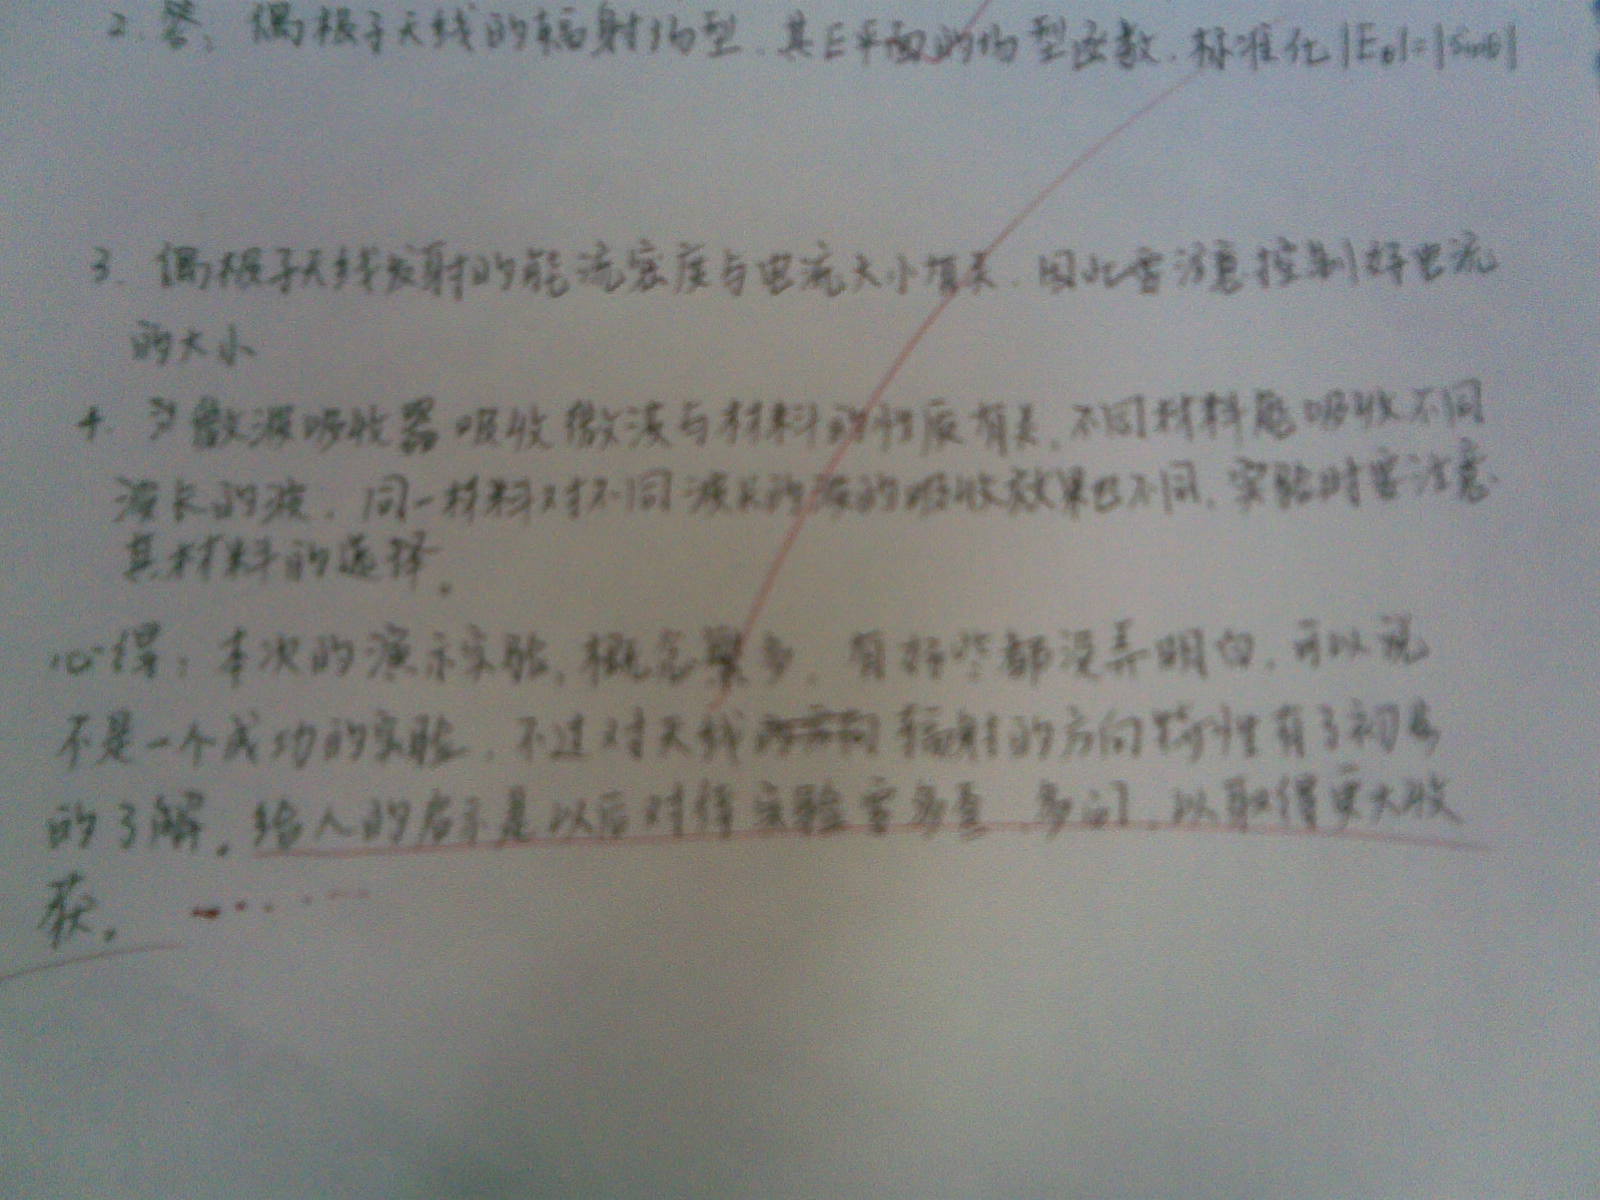 2. 答: 偶极子天线的辐射场型. 其E平面的场型函数. 标准化|Eθ|=|sinθ|
3. 偶极子天线发射的能流密度与电流大小有关. 因此需注意控制好电流
的大小
4. 微波吸收器吸收微波与材料的性质有关. 不同材料能吸收不同
波长的波. 同一材料对不同波长的波的吸收效果也不同. 实验时要注意
其材料的选择.
心得: 本次的演示实验, 概念繁多. 有好些都没弄明白. 可以说
不是一个成功的实验. 不过对天线辐射的方向特性有了初步
的了解. 给人的启示是以后对待实验要多查、多问. 以取得更大收
获.